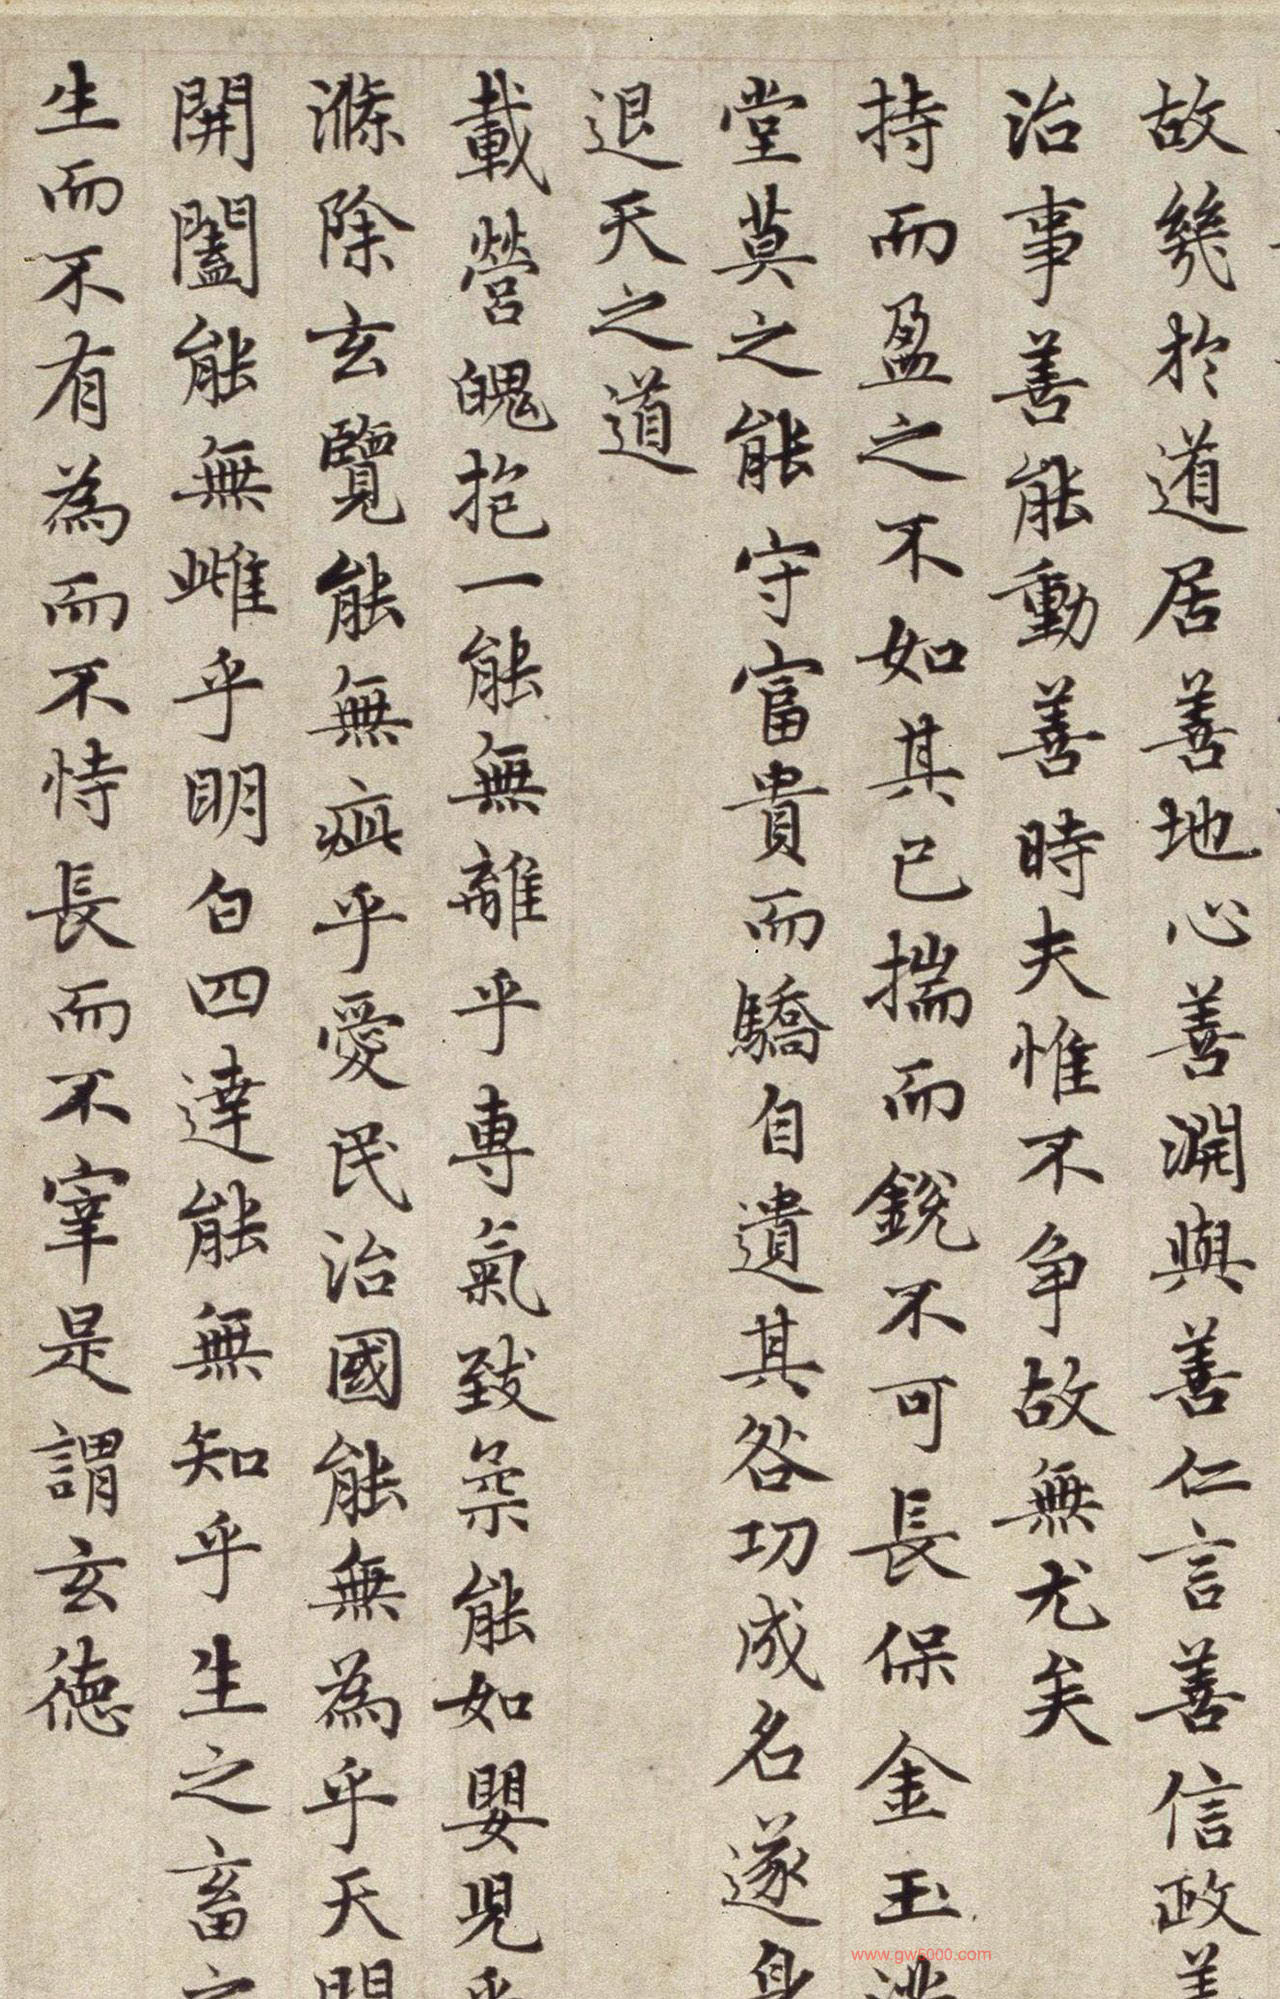 故幾於道居善地心善淵與善仁言善信政善
治事善能動善時夫惟不争故無尤矣
持而盈之不如其已揣而銳不可長保金玉滿
堂莫之能守富貴而驕自遺其咎功成名遂身
退天之道
載營魄抱一能無離乎專氣致柔能如嬰兒乎
滌除玄覽能無疵乎愛民治國能無為乎天門
開闔能無雌乎明白四達能無知乎生之畜之
生而不有為而不恃長而不宰是謂玄德
www.gw5000.com